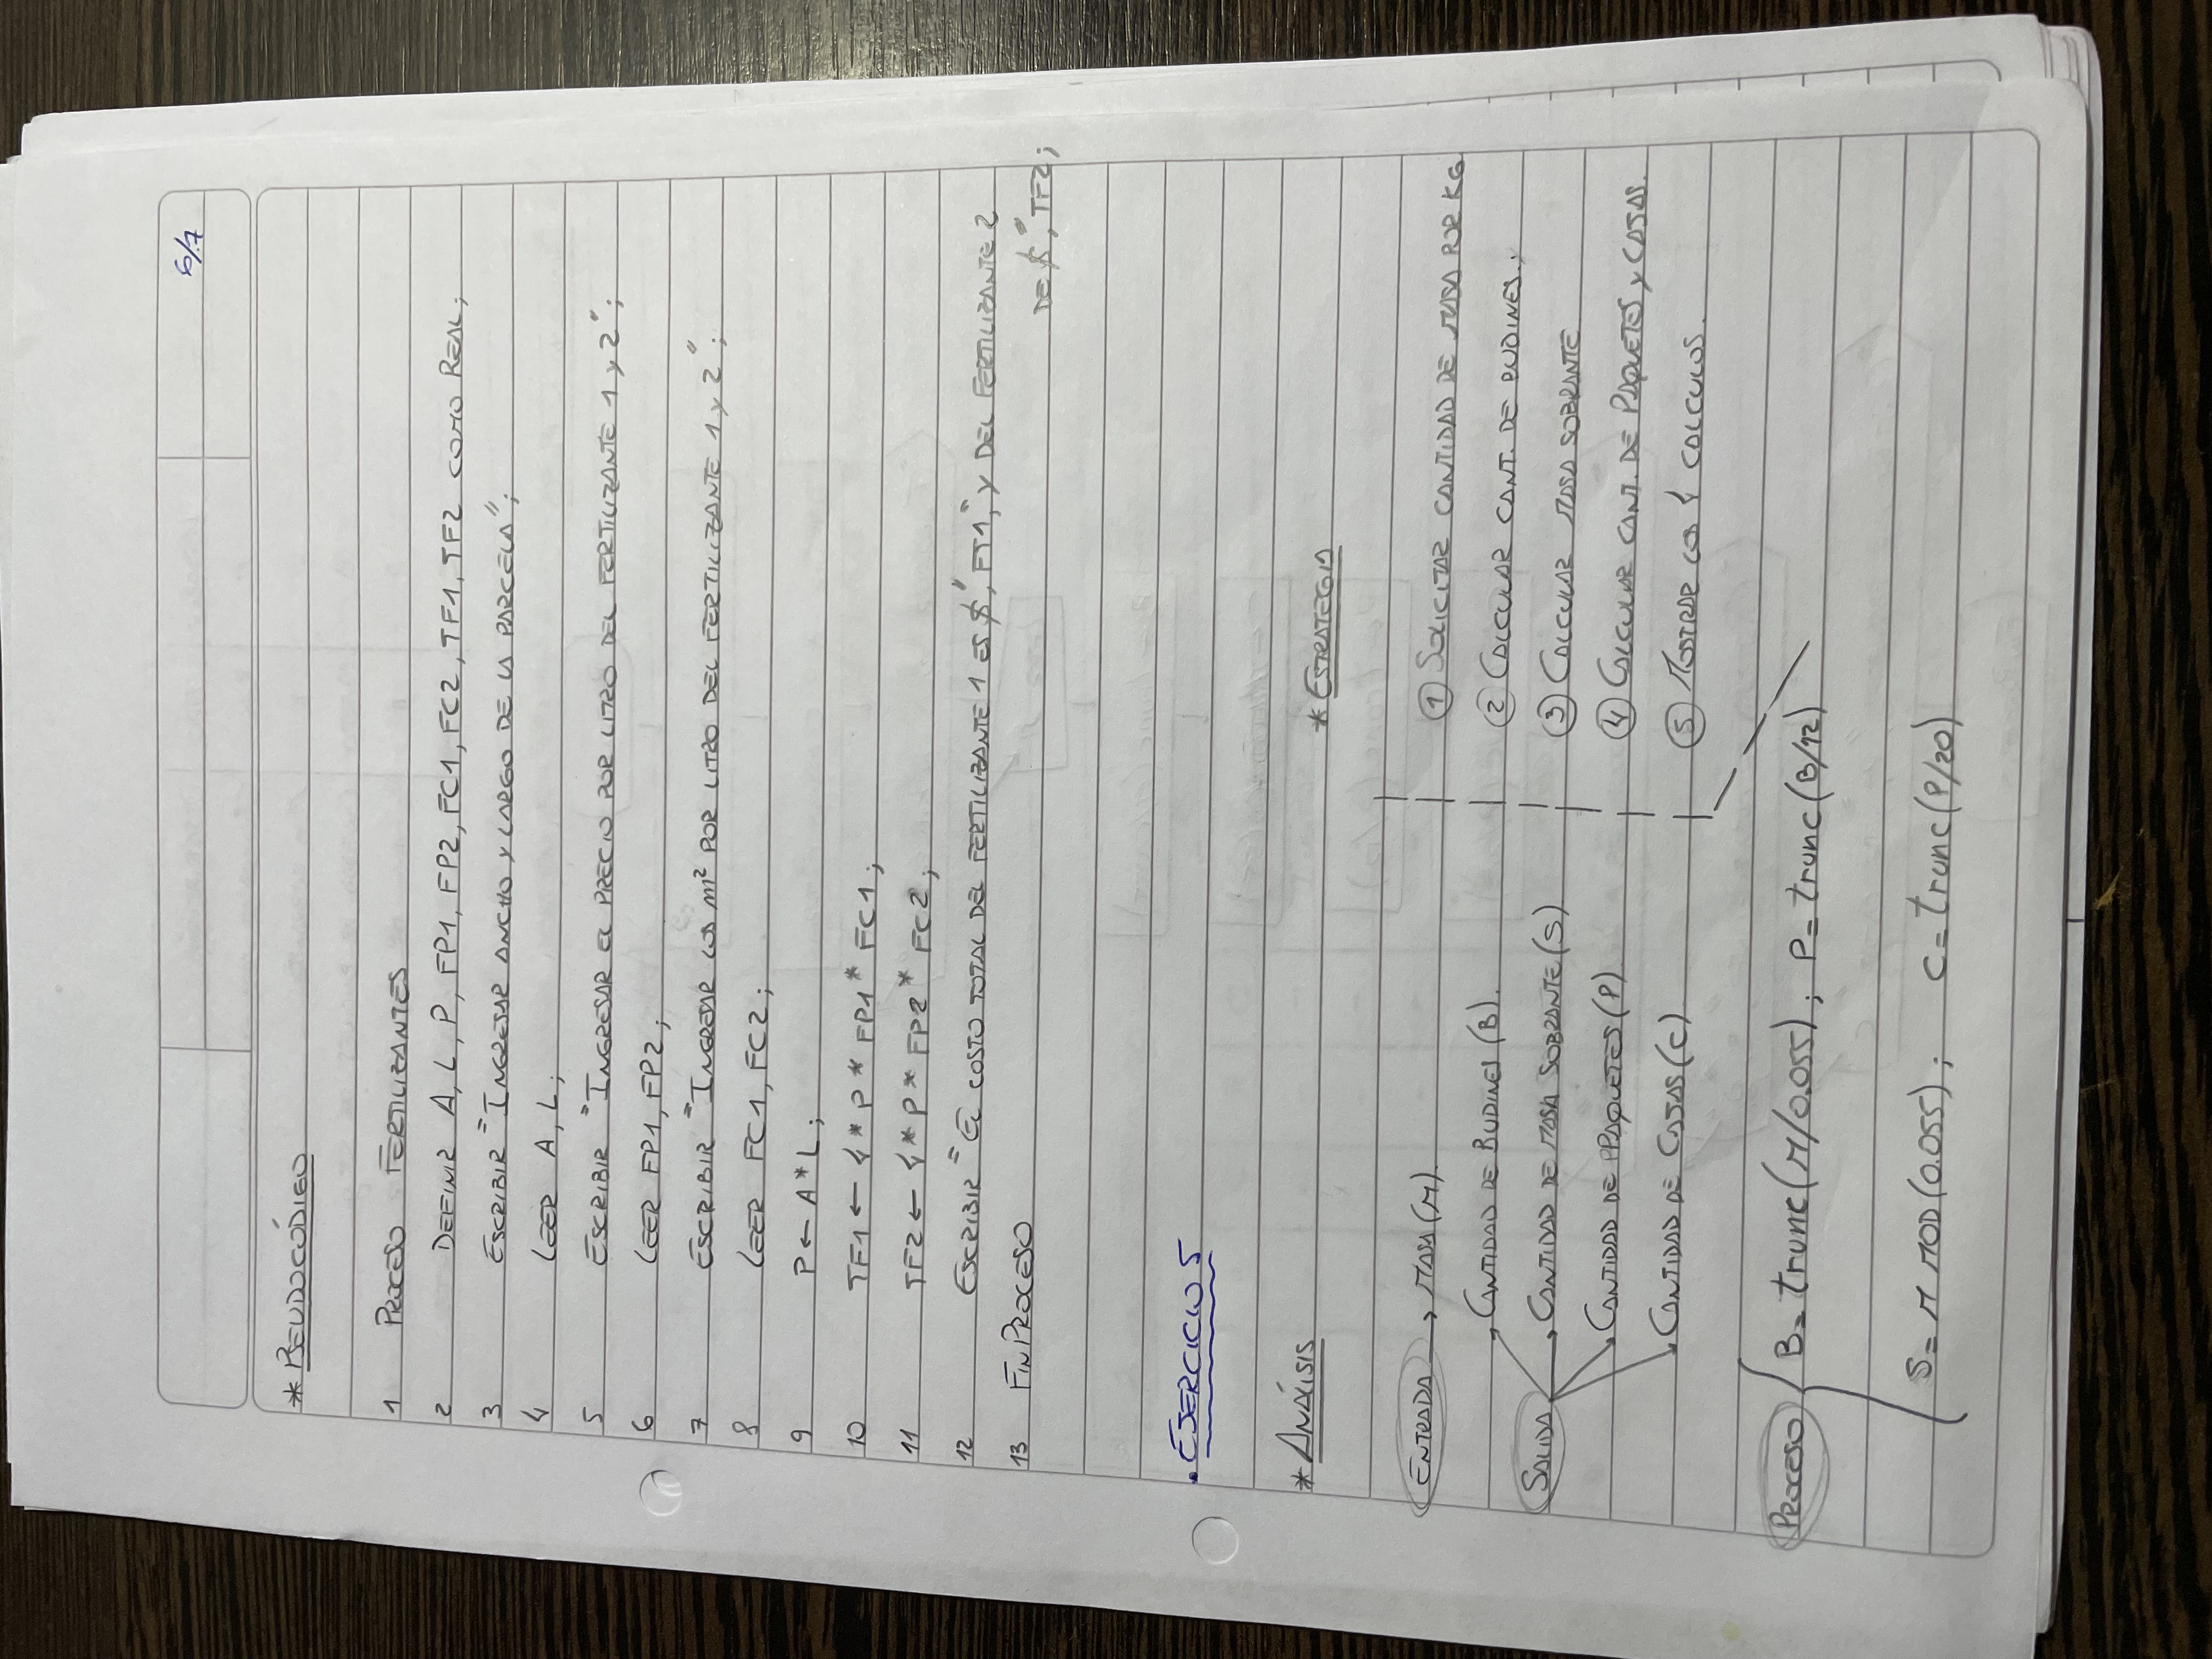 6/7
* PSEUDOCÓDIGO
1 PROCESO FERTILIZANTES
2 DEFINIR A, L, P, FP1, FP2, FC1, FC2, TF1, TF2 COMO REAL;
3 ESCRIBIR "INGRESAR ANCHO Y LARGO DE LA PARCELA";
4 LEER A, L;
5 ESCRIBIR "INGRESAR EL PRECIO POR LITRO DEL FERTILIZANTE 1 y 2";
6 LEER FP1, FP2;
7 ESCRIBIR "INGRESAR LOS m² POR LITRO DEL FERTILIZANTE 1 y 2";
8 LEER FC1, FC2;
9 P ← A*L;
10 TF1 ← 4 * P * FP1 * FC1;
11 TF2 ← 4 * P * FP2 * FC2;
12 ESCRIBIR "EL COSTO TOTAL DEL FERTILIZANTE 1 ES $", FT1, "y DEL FERTILIZANTE 2
DE $", TF2;
13 FINPROCESO
. EJERCICIO 5
* ANÁLISIS
* ESTRATEGIA
ENTRADA → MASA (M).
SALIDA
CANTIDAD DE BUDINES (B).
CANTIDAD DE MASA SOBRANTE (S)
CANTIDAD DE PPAQUETES (P)
CANTIDAD DE CAJAS (C)
① SOLICITAR CANTIDAD DE MASA POR KG
② CALCULAR CANT. DE BUDINES.;
③ CALCULAR MASA SOBRANTE
④ CALCULAR CANT. DE PAQUETES y CAJAS.
⑤ MOSTRAR LOS 4 CALCULOS.
PROCESO { B= trunc(M/0.055); P= trunc(B/12)
S= M MOD(0.055); C= trunc(P/20)